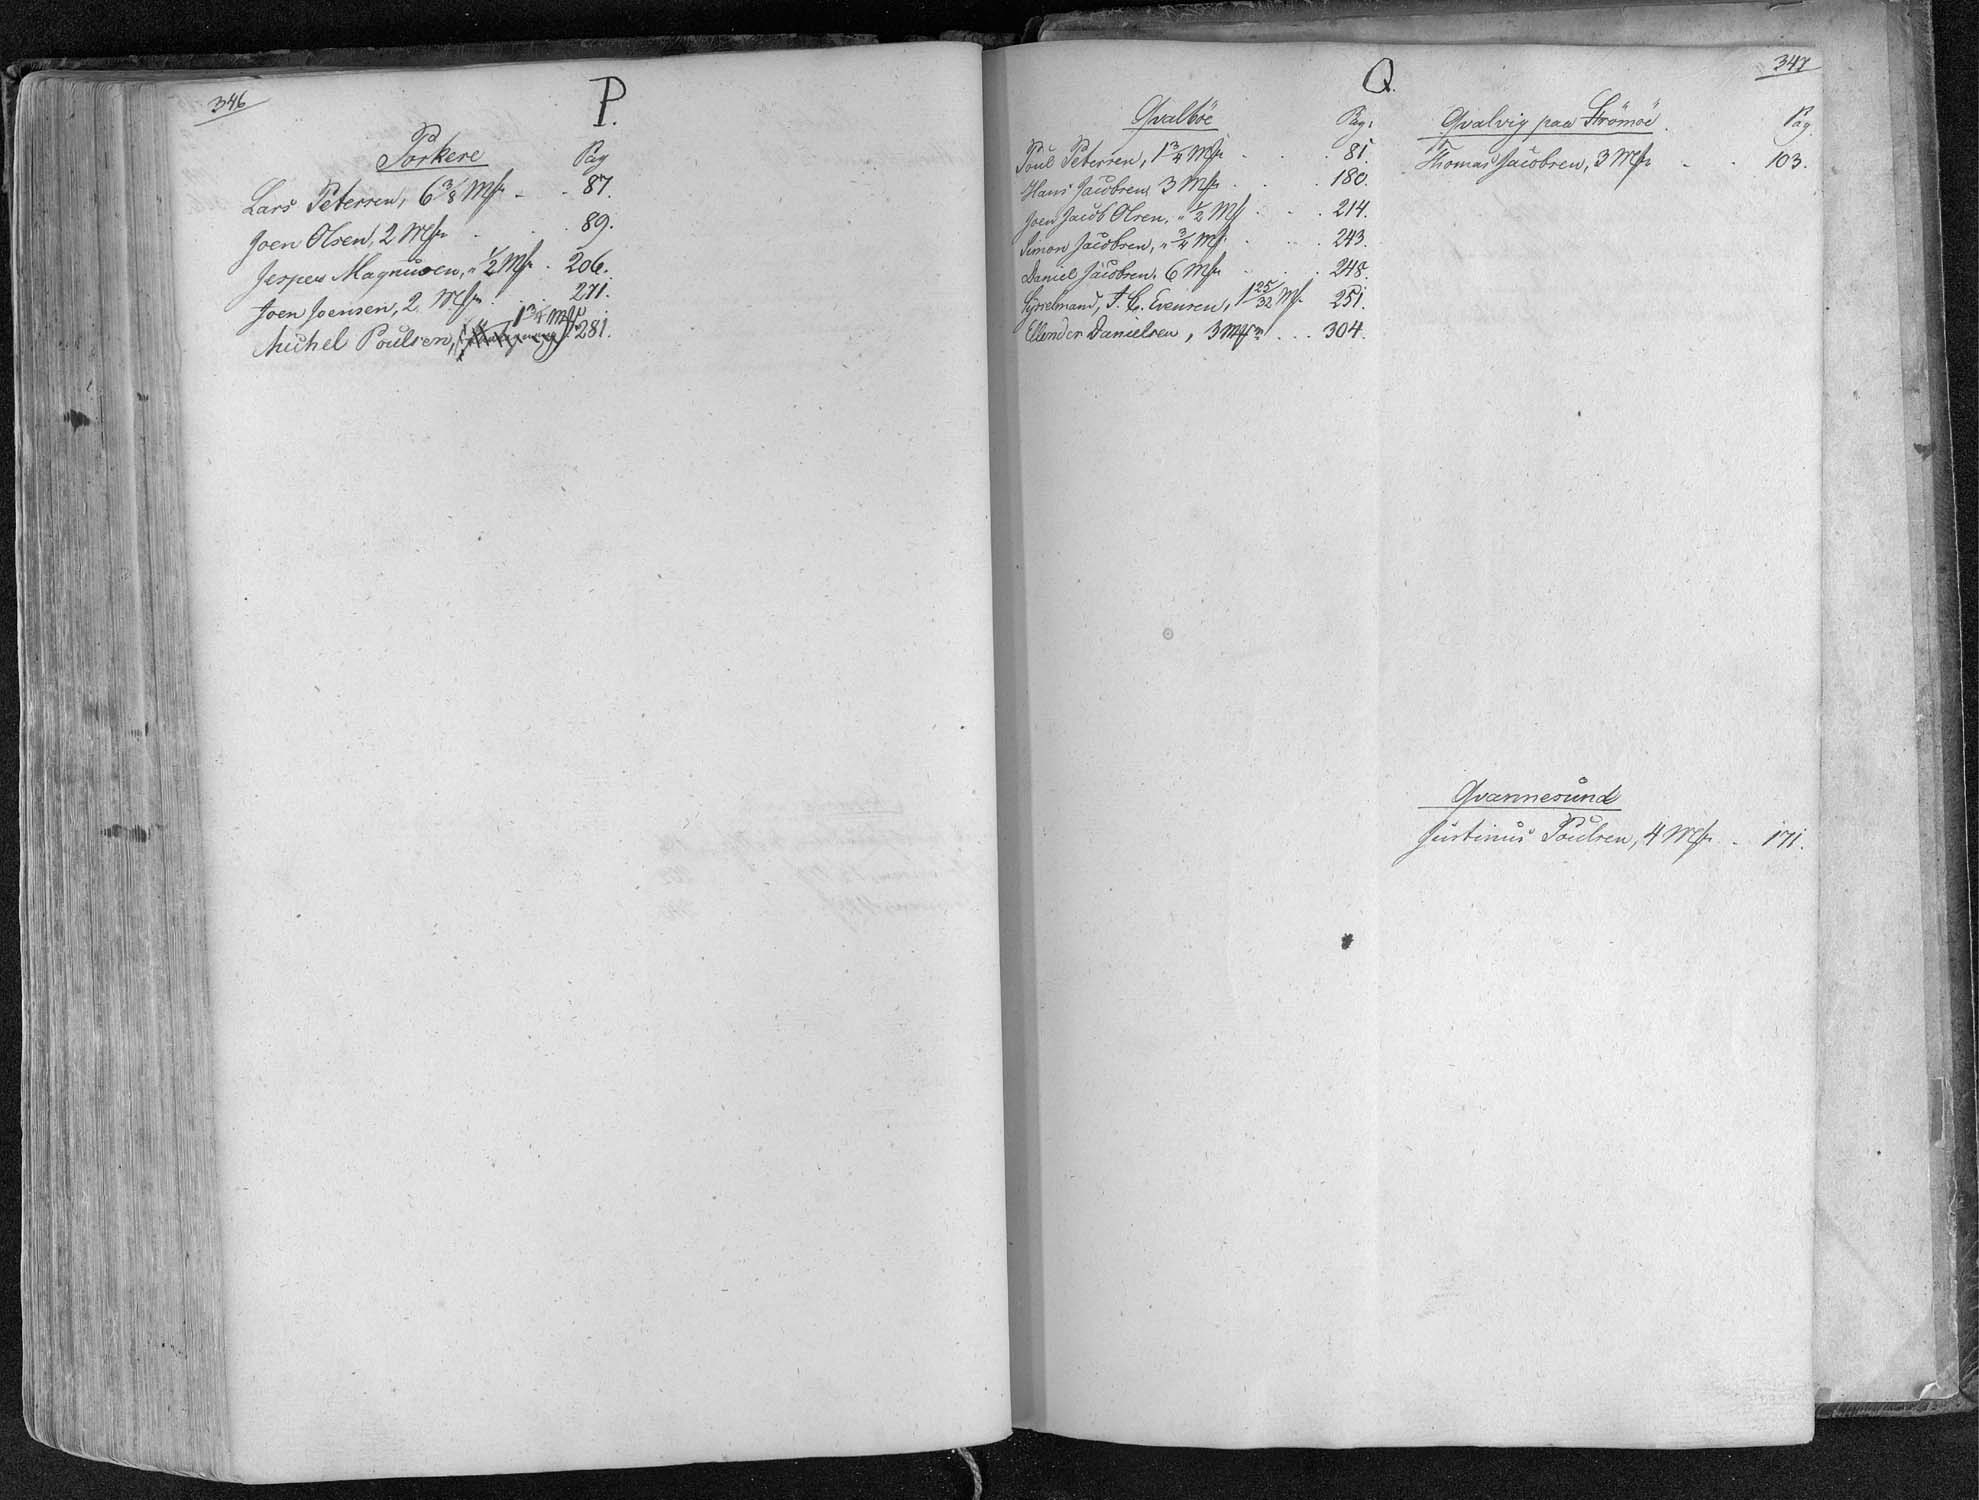 346
P.
Porkere Pag
Lars Petersen, 6 3/8 Mk - . 87.
Joen Olsen, 2 Mk . . 89.
Jesper Magnusen, " 1/2 Mk . 206.
Joen Joensen, 2 Mk . . 271.
1 3/4 Mk
Michel Poulsen, . 281.
347
Q.
Qvalböe Pag:
Poul Petersen, 1 3/4 Mk . . . 81.
Hans Jacobsen, 3 Mk . . . 180.
Joen Jacob Olsen, " 1/2 Mk . . . 214.
Simon Jacobsen, " 3/4 Mk . . . 243.
Daniel Jacobsen, 6 Mk . . . 248.
Sysselmand, J. C. Evensen, 1 25/32 Mk. 251.
Ellend Danielsen, 3 Mk . . . 304.
Qvalvig paa Strömöe. Pag
Thomas Jacobsen, 3 Mk - . 103.
Qvannesund
Justinus Poulsen, 4 Mk - 171.